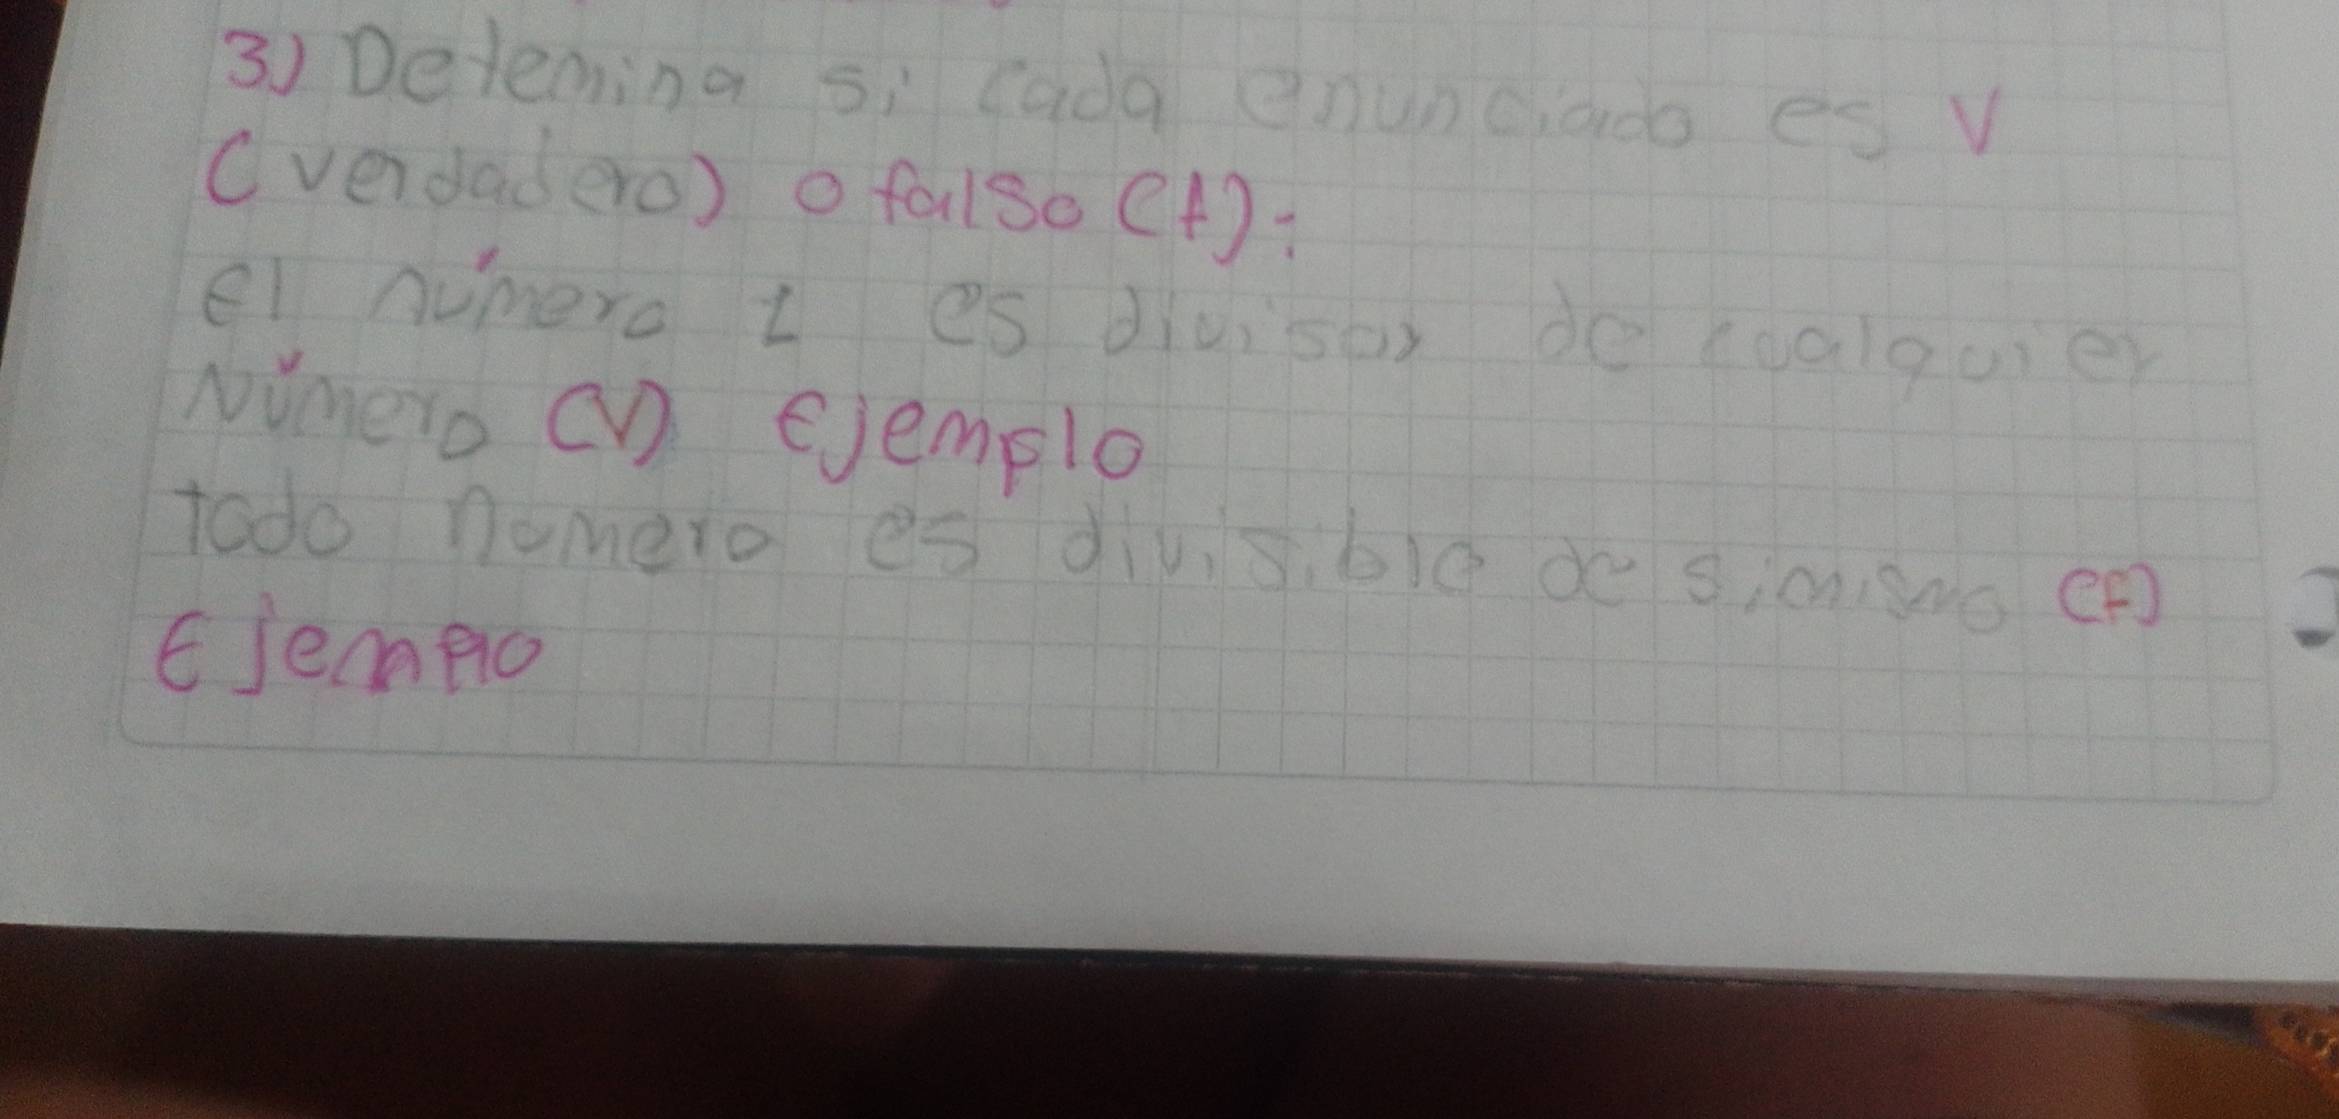 3) Detemina si cada enunciado es V
(verdadero) o falso (f):
el número 1 es divisor de cualquier
Número (V) Ejemplo
todo número es divisible de simismo (F)
Ejemplo